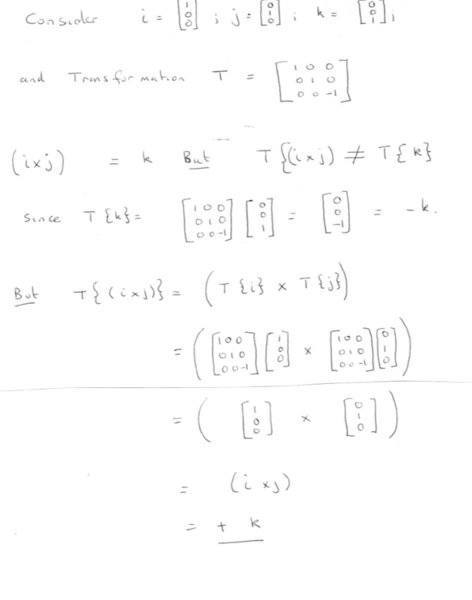 Consider i = [1 0 0] ; j = [0 1 0] ; k = [0 0 1] ;
and Transformation T = [1 0 0 0 1 0 0 0 -1]
(i×j) = k But T{(i×j) ≠ T{k}
since T{k} = [1 0 0 0 1 0 0 0 -1] [0 0 1] = [0 0 -1] = -k.
But T{(i×j)} = (T{i} × T{j})
= ([1 0 0 0 1 0 0 0 -1] [1 0 0] × [1 0 0 0 1 0 0 0 -1] [0 1 0])
= ([1 0 0] × [0 1 0])
= (i×j)
= + k